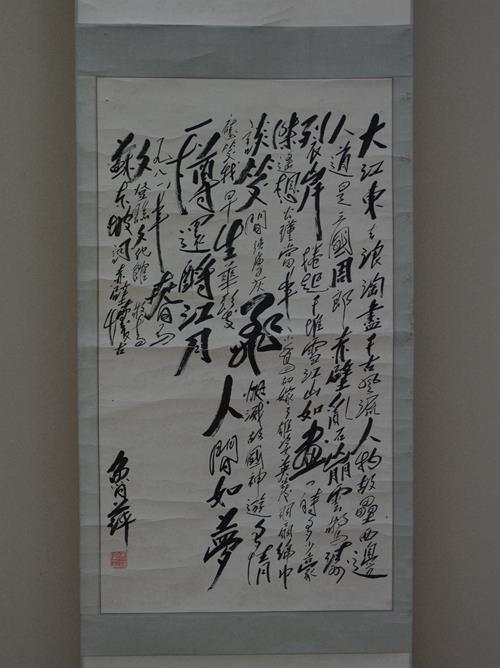 大江東去浪淘盡千古風流人物故壘西邊
人道是三國周郎赤壁亂石崩雲驚濤
裂岸捲起千堆雪江山如畫一時多少豪
傑遙想公瑾當年小喬初嫁了雄姿英發羽扇綸巾
談笑間檣櫓灰飛煙滅故國神遊多情
應笑我早生華髮人間如夢
一樽還酹江月
一九八一年春日為
文登縣文化館
蘇東坡詞赤壁懷古
萍